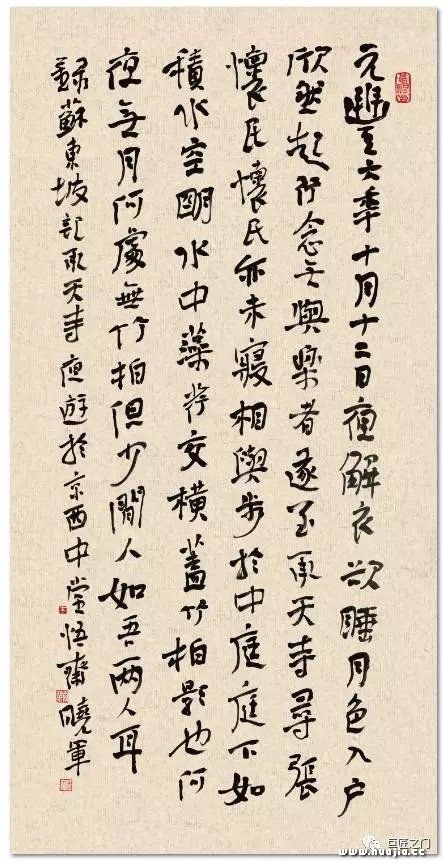 元六年十月十二日夜解衣欲睡月色入户
欣然起行念无與樂者遂至承天寺尋張
懷民懷民亦未寢相與步於中庭庭下如
積水空明水中藻荇交横蓋竹柏影也何
夜無月何處無竹柏但少閒人如吾兩人耳
錄蘇東坡記承天寺夜遊於京西中堂悟齋曉軍
巨匠之门
www.huajia.cc